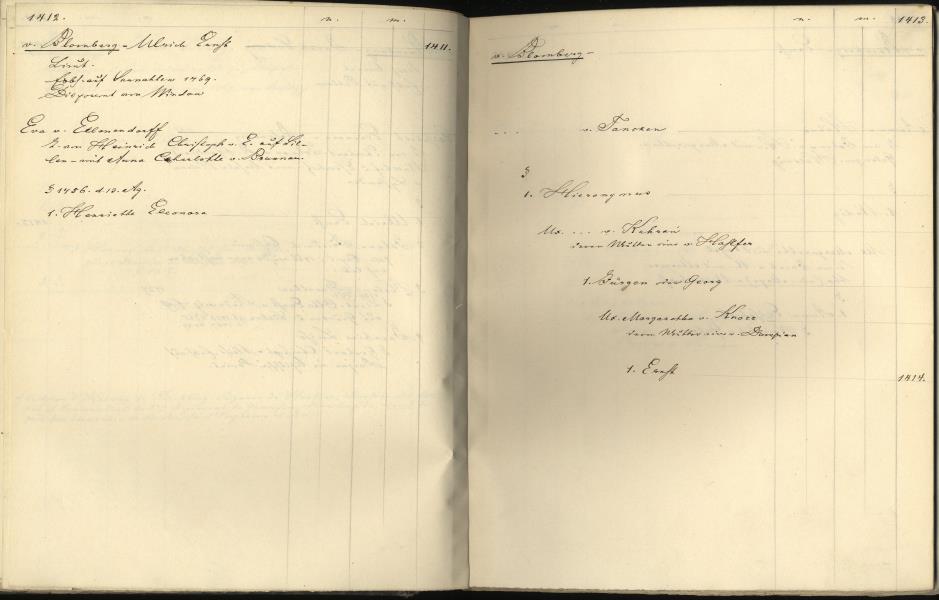 1412. n. m.
v. Blomberg - Ulrich Ernst 1411.
Lieut.
Erbh. auf Sernathen 1769.
Disponent von Windau
Eva v. Ellmendorff
T. von Heinrich Christoph v. E. auf
ten - mit Anna Charlotte v. Brunnow
§ 1756. d. 10. Ag.
1. Henriette Eleonora
n. m. 1413.
v. Blomberg -
... v. Tancken
§
1. Hieronymus
Ux. ... v. Kahren
deren Mutter eine v. Hastfer
1. Jürgen oder Georg
Ux. Margaretha v. Knorr
deren Mutter eine v. Dumpian
1. Ernst 1414.